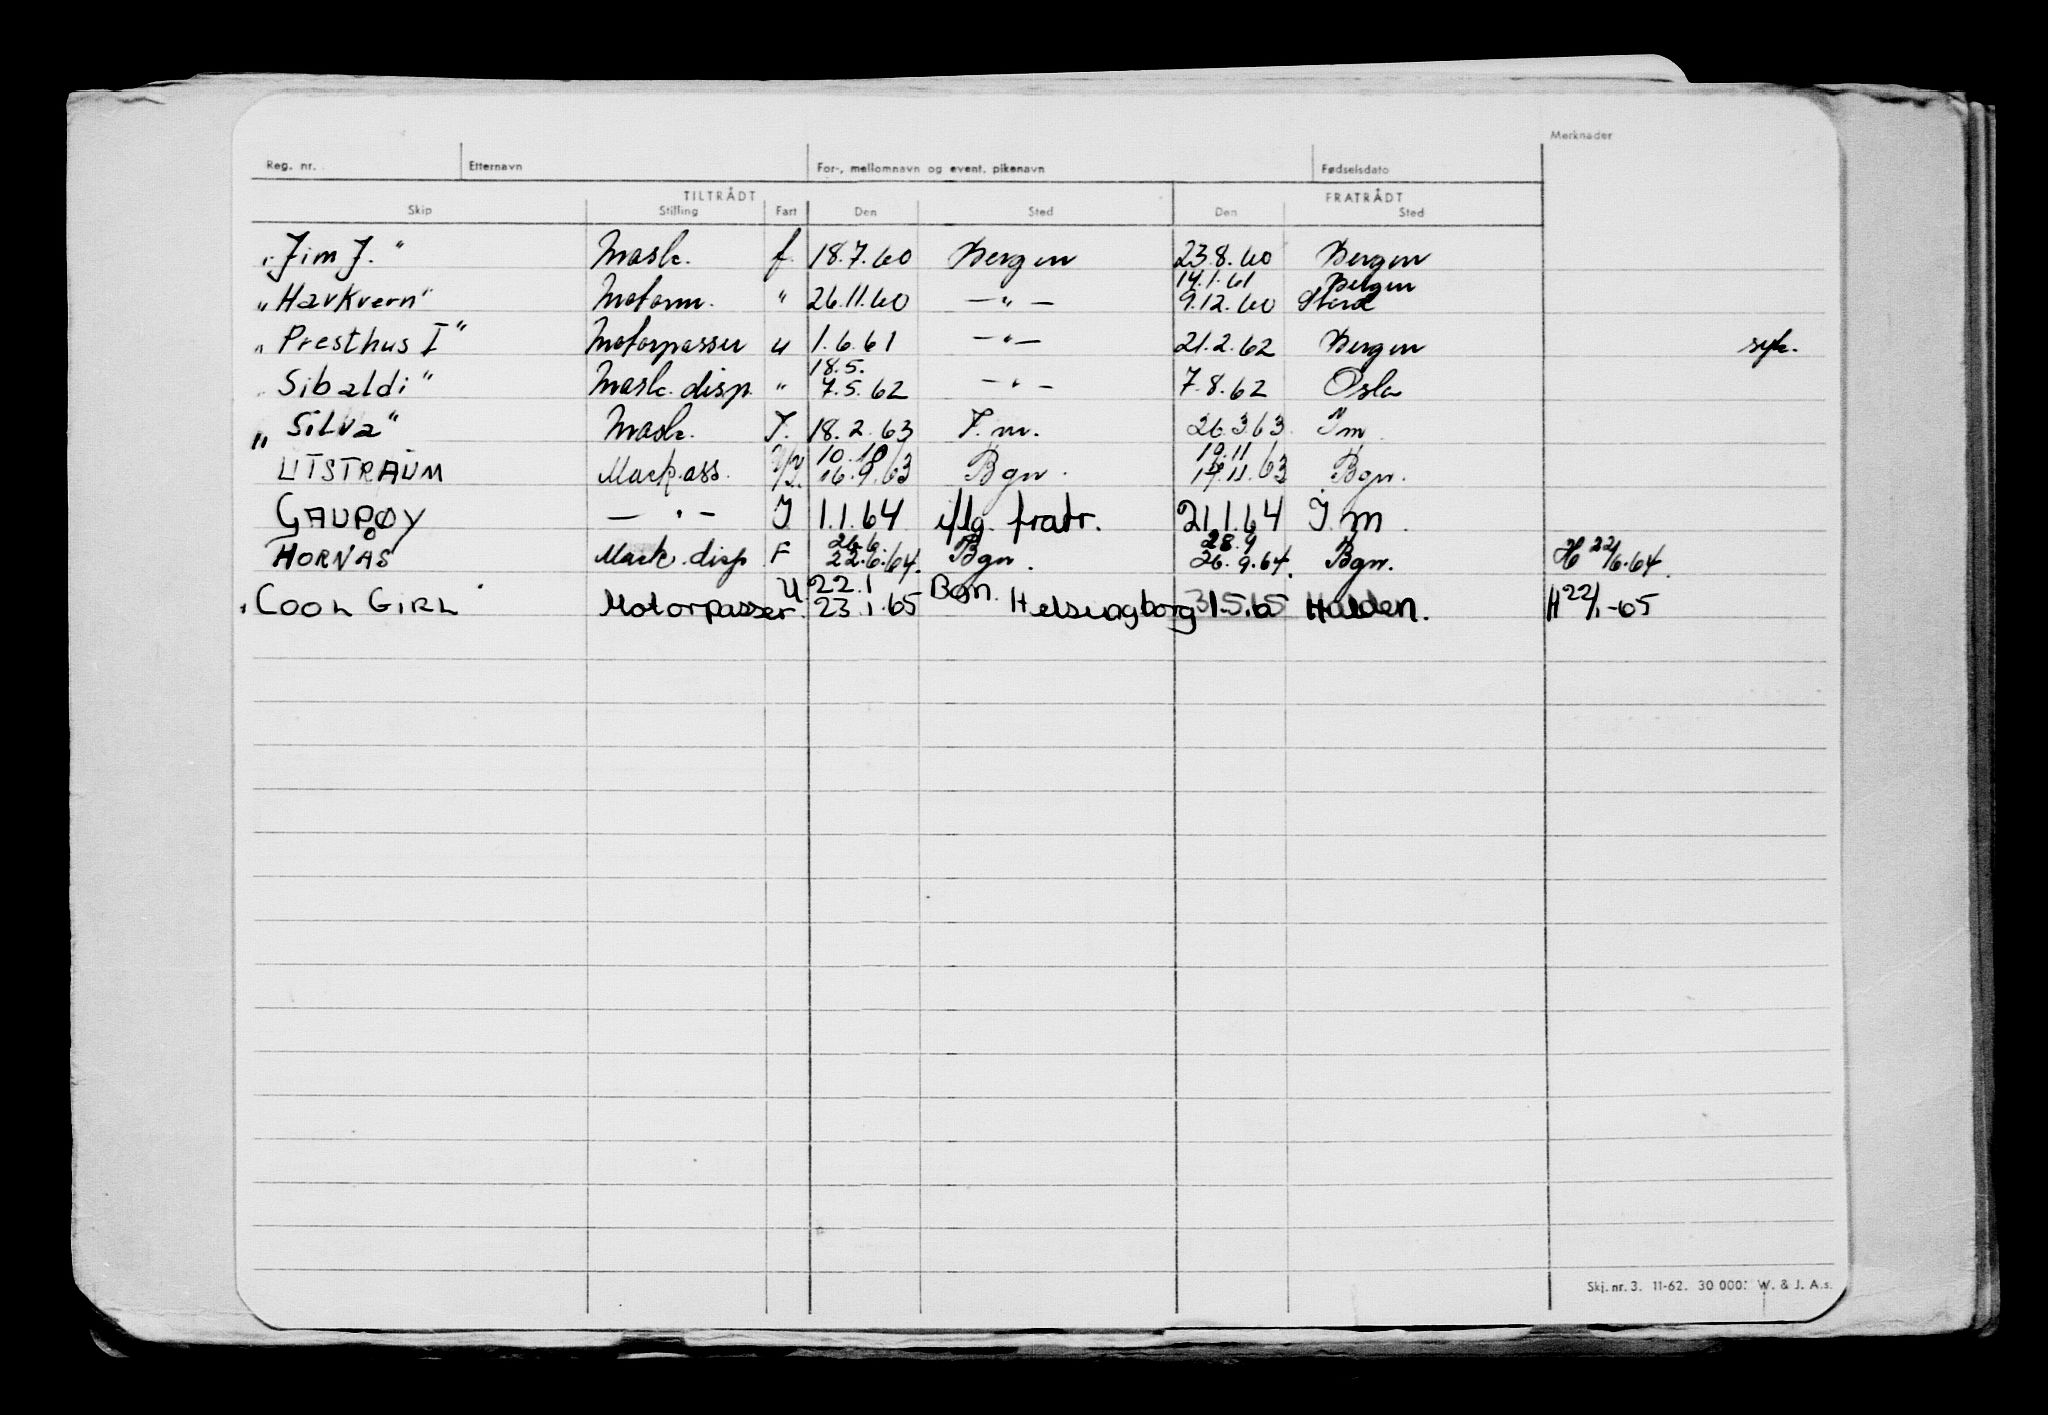 Merknader
Reg. nr. Etternavn For-, mellomnavn og event. pikenavn Fødselsdato
TILTRÅDT FRATRÅDT
Skip Stilling Fart Den Sted Den Sted
"Jim J." Mask. f. 18.7.60 Bergen 23.8.60 Bergen
14.1.61 Bergen
"Havkvern" Motorm. " 26.11.60 — " — 9.12.60 Stord
"Presthus I" Motorpasser u 1.6.61 — " — 21.2.62 Bergen syk.
18.5.
"Sibaldi" Mask. disp. " 7.5.62 — " — 7.8.62 Oslo
"Silva" Mask. J. 18.2.63 J.m. 26.3.63 J m
10.10 19.11
UTSTRAUM Mask.ass. 16.9.63 Bgn. 11.63 Bgn.
GAUPØY — " — J 1.1.64 iflg. fratr. 21.1.64 J.m.
26.6. 28.9
HORNÅS Mask. disp F 22.6.64. Bgn. 26.9.64. Bgn. H 22/6.64.
U 22.1 Bgn.
"COOL GIRL" Motorpasser. 23.1.65 Helsingborg Halden. H 22/1-65
Skj. nr. 3. 11-62. 30 000. W. & J. A.s.